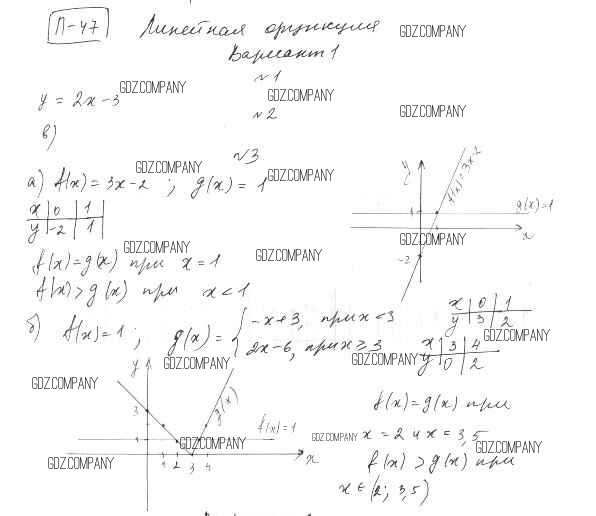 П-47 Линейная функция GDZ.COMPANY
Вариант 1
№1
y = 2x - 3 GDZ.COMPANY GDZ.COMPANY
№2 GDZ.COMPANY
в)
№3
GDZ.COMPANY
а) f(x) = 3x - 2 ; g(x) = 1 GDZ.COMPANY
x | 0 | 1
y | -2 | 1
GDZ.COMPANY
f(x) = g(x) при x = 1 GDZ.COMPANY
f(x) > g(x) при x < 1
y
f(x) = 3x-2
1
g(x)=1
x
GDZ.COMPANY
-2
б) f(x) = 1 ; g(x) = { -x+3, при x < 3
2x-6, при x ≥ 3
x | 0 | 1
y | 3 | 2
GDZ.COMPANY
x | 3 | 4
y | 0 | 2
GDZ.COMPANY GDZ.COMPANY
GDZ.COMPANY
y
3
g(x)
f(x)=1
GDZ.COMPANY
1
1 2 3 4 x
GDZ.COMPANY
f(x) = g(x) при
GDZ.COMPANY x = 2 и x = 3,5 GDZ.COMPANY
f(x) > g(x) при
x ∈ (2; 3,5)